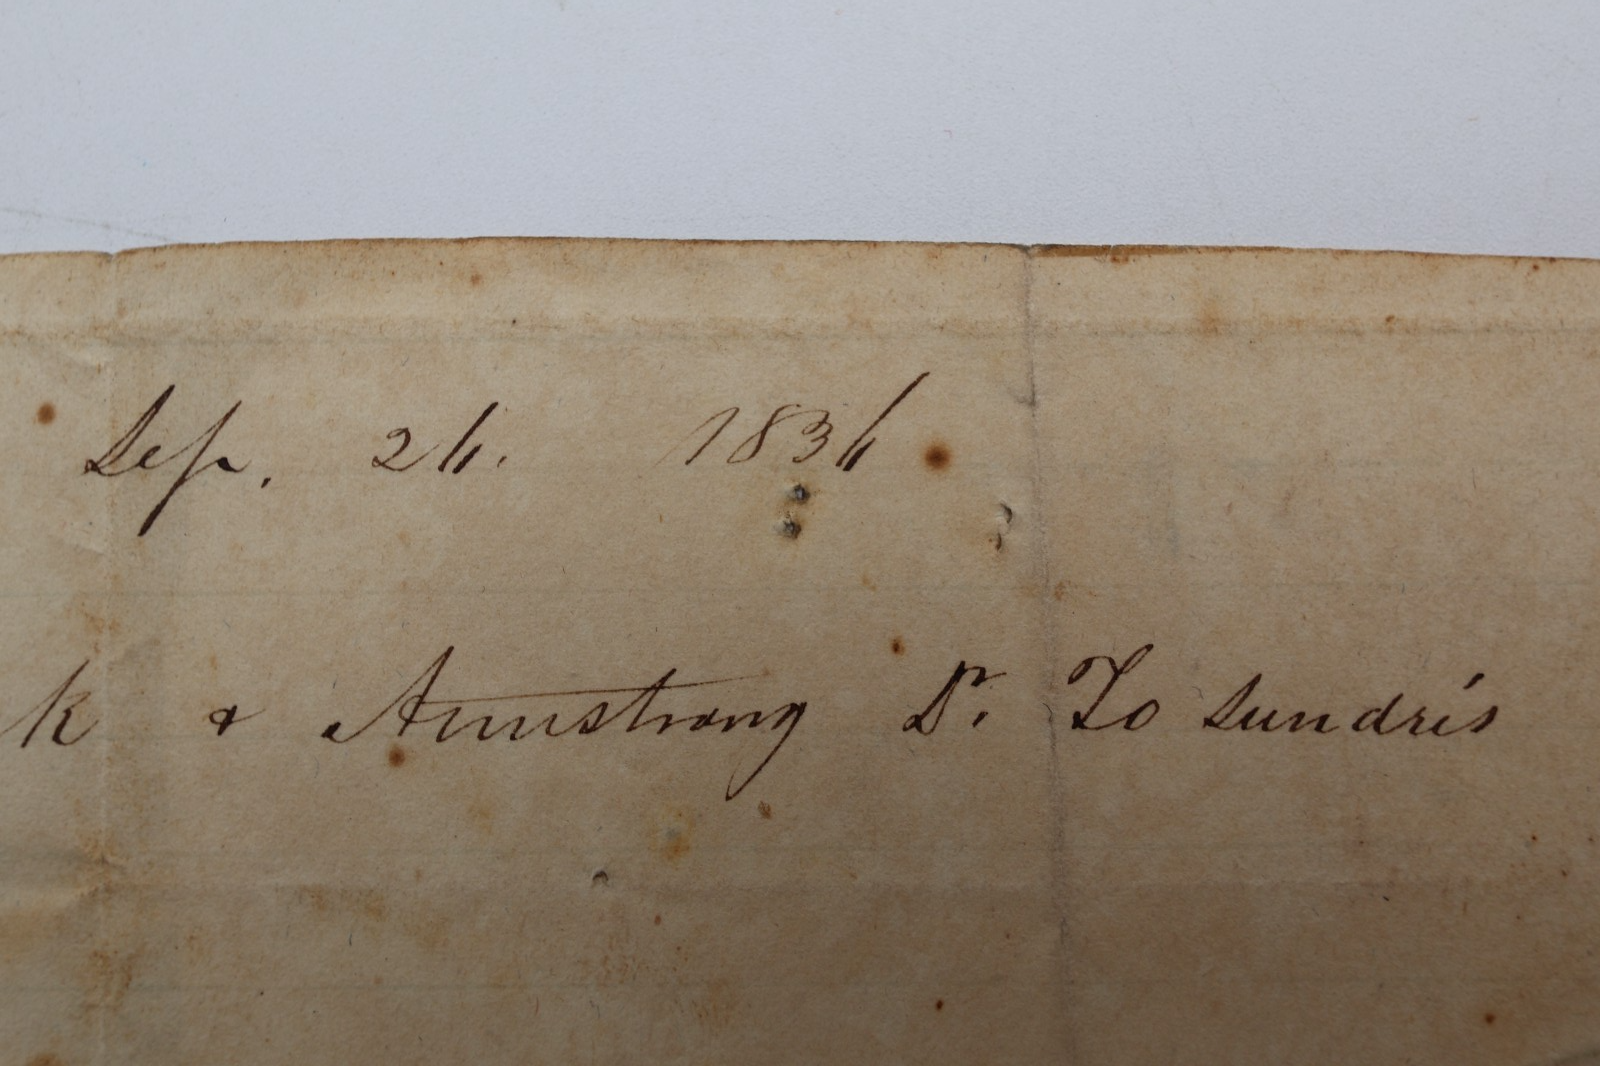 Sep. 26. 1836
k & Armstrong Dr. To Sundris